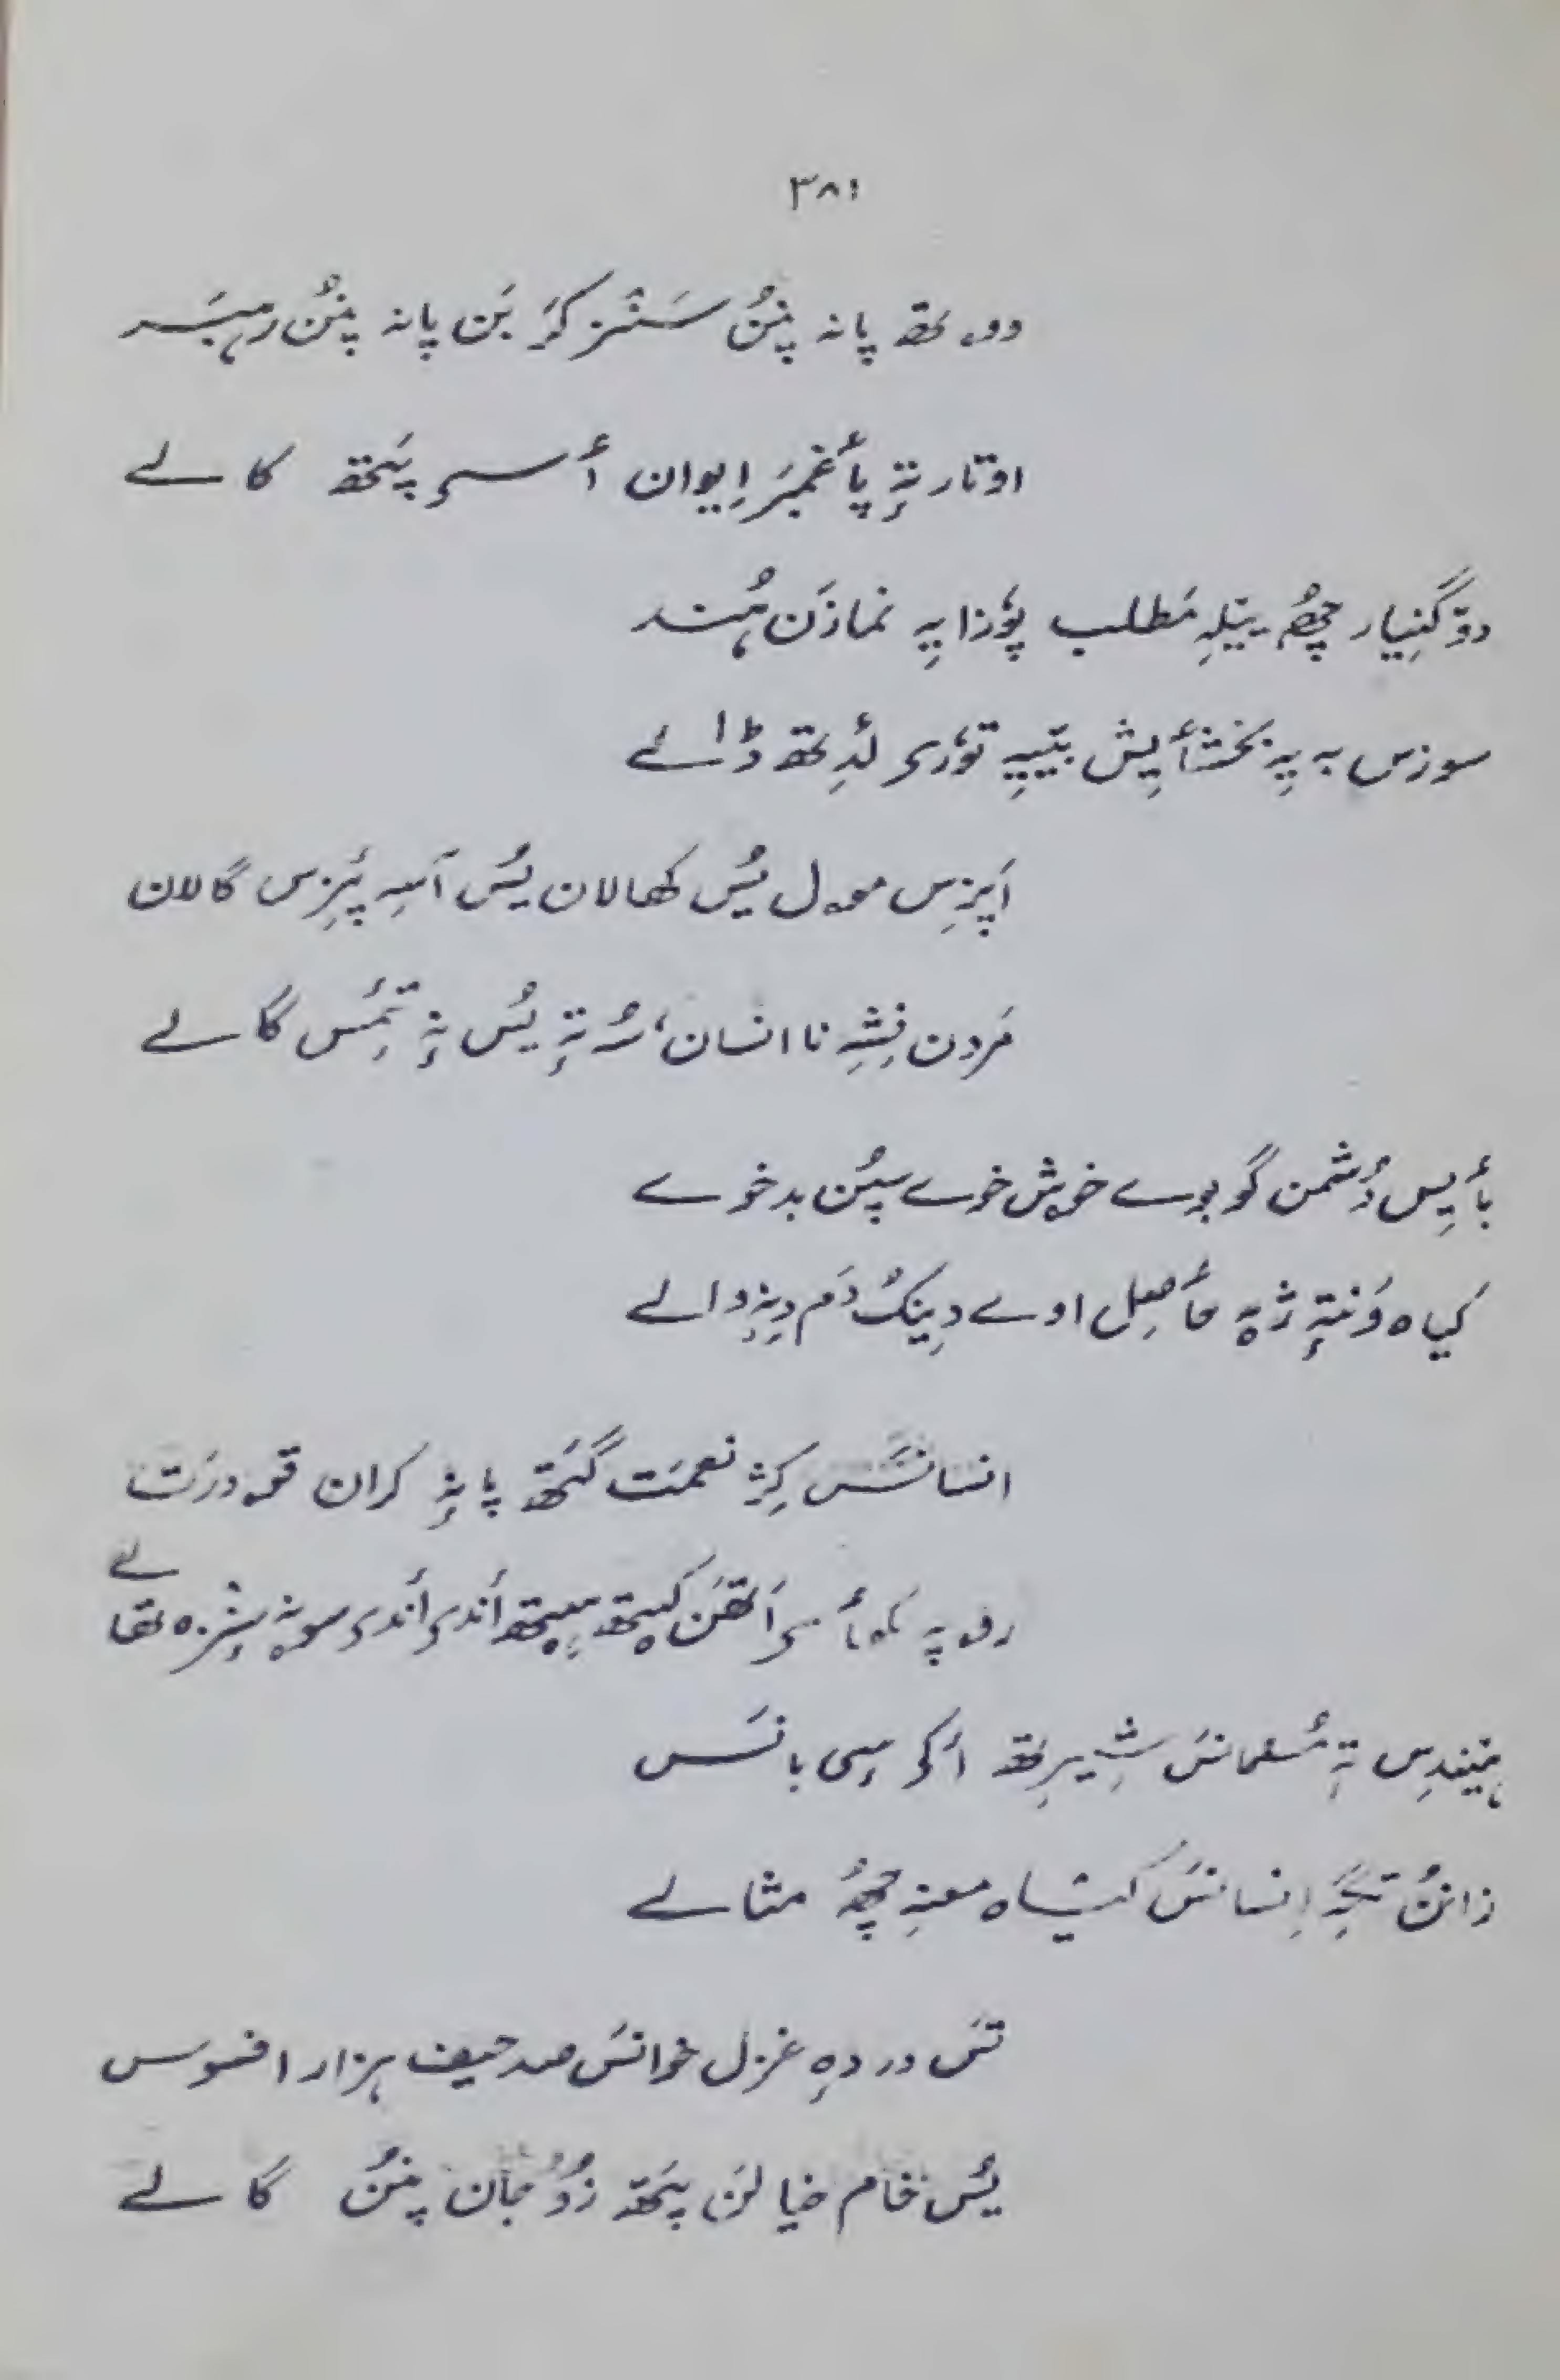 ۳۸۱
دوہ تھ پانہ پنُن سَنٛز کَر بَن پانہ پنُن رہبَر
اوتار تہٕ پٲغمبَر اِیوان ٲسۍ پَتھ کالے
دۆگنیار چھُ یَیلہِ مَطلب پوٗزایہِ نمازَن ہُند
سوزس بہ یہِ بخشٲیِش بییہِ توٗرۍ لَدِتھ ڈالے
اَپزِس موول یُس کھالان یُس آسہِ پَزِس گالان
مَردن نِشہِ نا انسان، سُہ تہٕ یُس نہٕ تَمِس گالے
بٲیِس دُشمن گو بوے خوش خوے سپُن بدخوے
کیاہ وَنتہٕ ژٕہ حٲصِل اوے دِینُک دَم دِنہٕ والے
انسانَس کِژ نعمَت گَتھ پانہٕ کران قودرَت
روپہ اَتھَن کیتھ ہیتھ اَندۍ اَندۍ سونہٕ سٕنٛزہ تھالے
ہیندِس تہٕ مُسلمانَس شِیرِتھ اَکۍ سٕی بانَس
زانُن تگہِ اِنسانَس کتیاہ معنہِ چھُ مثالے
تَس دردہٕ غزل خوانَس صد حیف ہزار افسوس
یُس خام خیالَن پَتھ زُو جان پنُن گالے